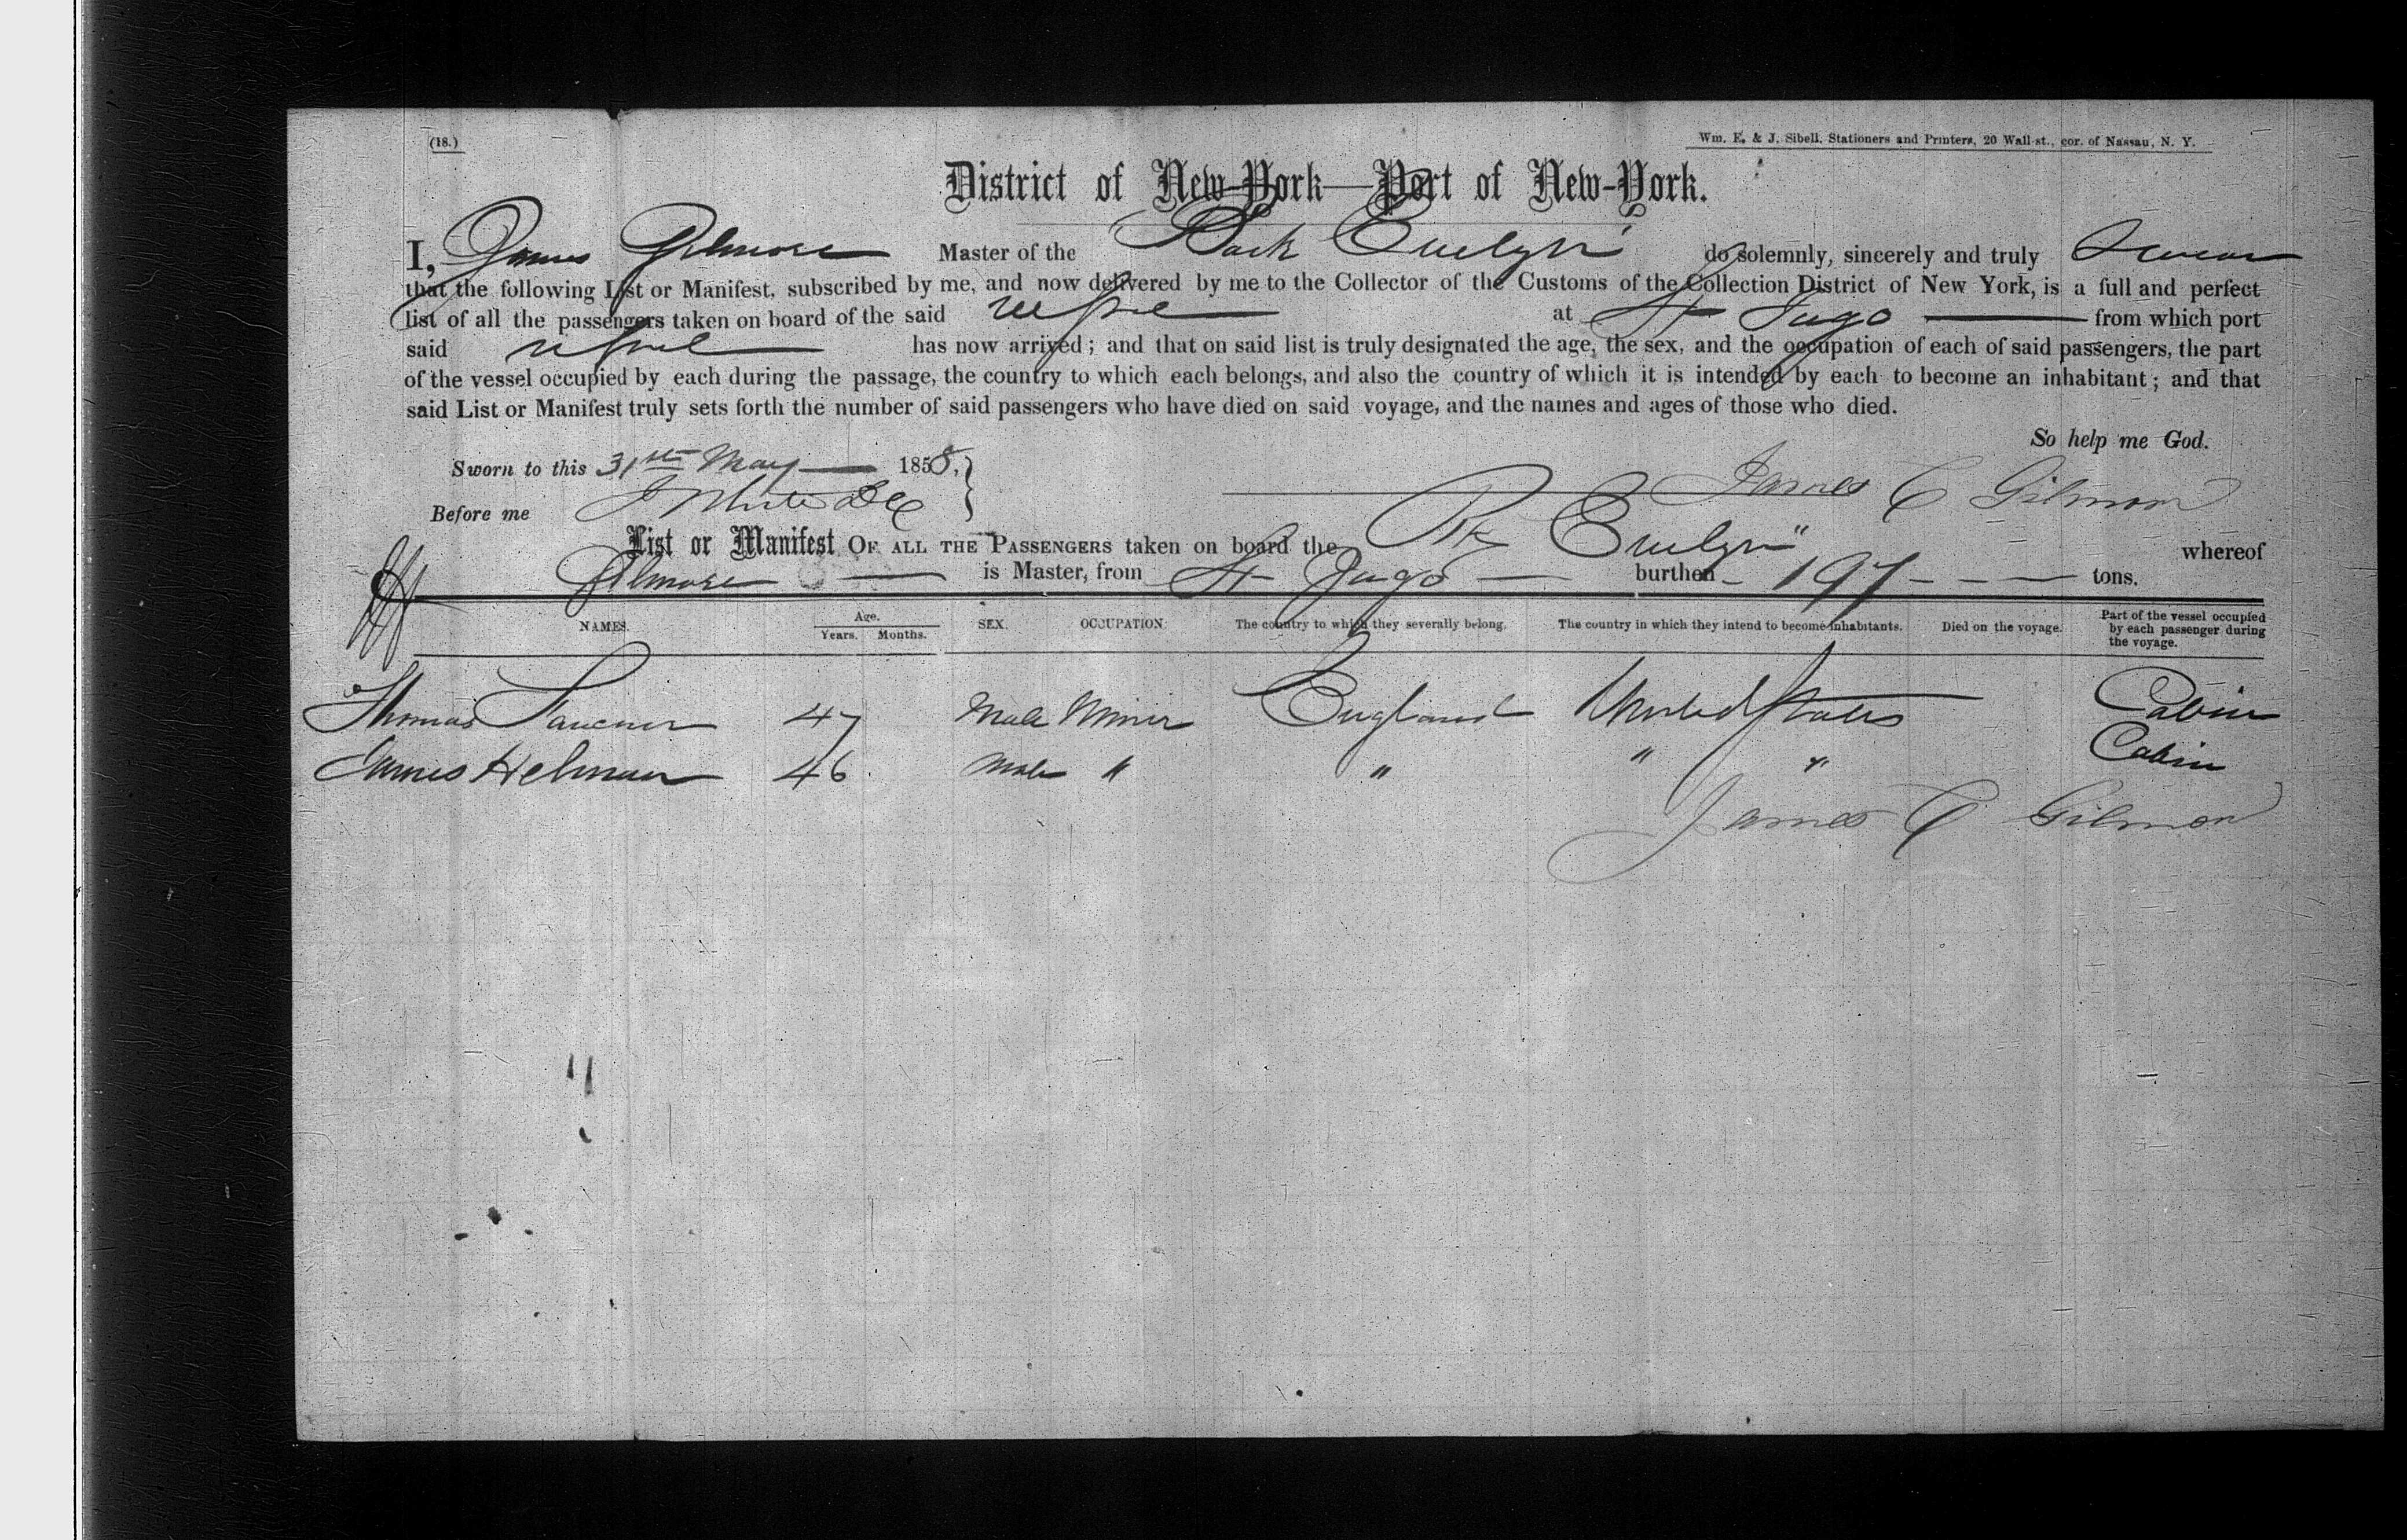 (18.)
Wm. E. & J. Sibell, Stationers and Printers, 20 Wall-st., cor. of Nassau, N. Y.
District of New-York—Port of New-York.
I, James Gilmore Master of the Bark Evelyn do solemnly, sincerely and truly Swear
that the following List or Manifest, subscribed by me, and now delivered by me to the Collector of the Customs of the Collection District of New York, is a full and perfect
list of all the passengers taken on board of the said vessel at St Jago from which port
said vessel has now arrived; and that on said list is truly designated the age, the sex, and the occupation of each of said passengers, the part
of the vessel occupied by each during the passage, the country to which each belongs, and also the country of which it is intended by each to become an inhabitant; and that
said List or Manifest truly sets forth the number of said passengers who have died on said voyage, and the names and ages of those who died.
So help me God.
Sworn to this 31st May 1858,
James C Gilmore
Before me
List or Manifest OF ALL THE PASSENGERS taken on board the Bk Evelyn" whereof
Gilmore is Master, from St Jago burthen 197 tons.
NAMES. Age. Years. Months. SEX. OCCUPATION. The country to which they severally belong. The country in which they intend to become inhabitants. Died on the voyage. Part of the vessel occupied by each passenger during the voyage.
Thomas 47 Male Miner England United States Cabin
James 46 Male " " " " Cabin
James C Gilmore